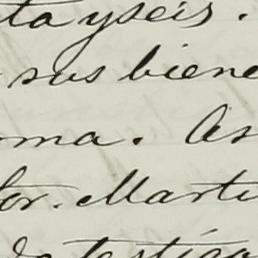 ta y seis.
sus biene
ma. As
or. Marti
do testigo